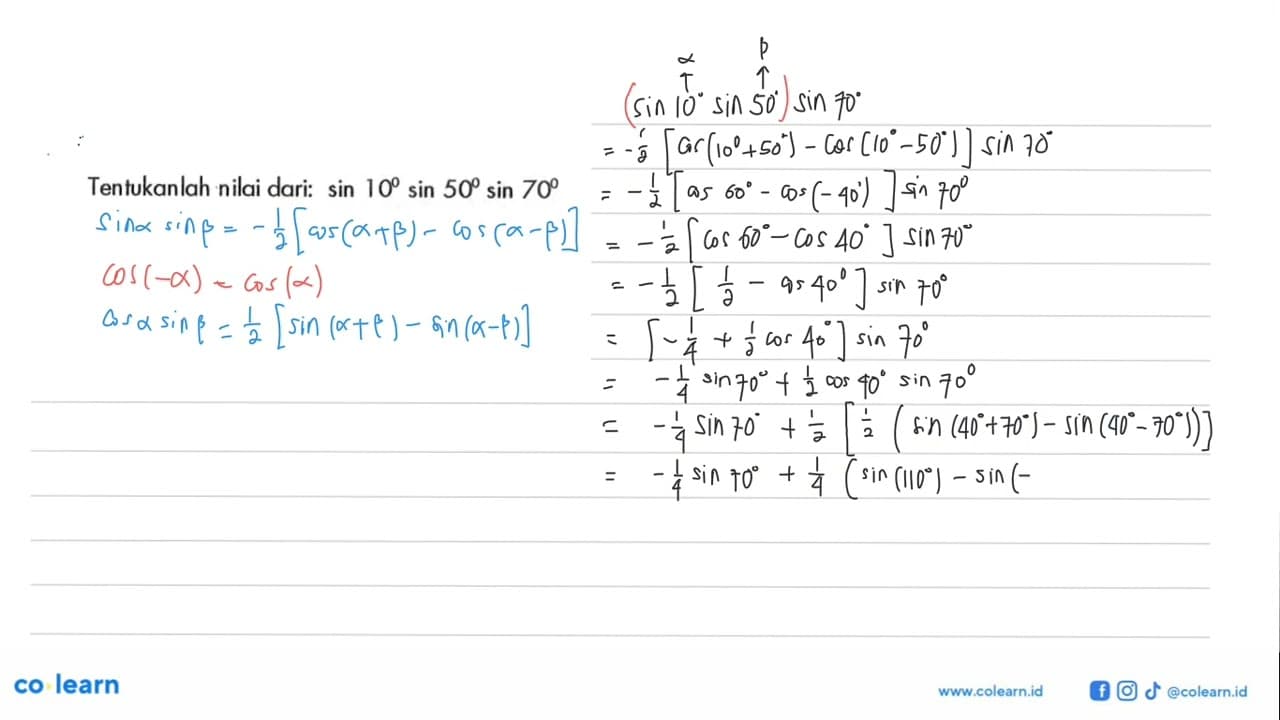 Tentukanlah nilai dari: sin 10⁰ sin 50⁰ sin 70⁰
sinα sinβ = -1/2 [cos(α+β) - cos(α-β)]
cos(-α) = cos(α)
cosα sinβ = 1/2 [sin(α+β) - sin(α-β)]
α β
↑ ↑
(sin 10° sin 50°) sin 70°
= -1/2 [cos(10°+50°) - cos(10°-50°)] sin 70°
= -1/2 [cos 60° - cos(-40°)] sin 70°
= -1/2 [cos 60° - cos 40°] sin 70°
= -1/2 [1/2 - cos 40°] sin 70°
= [-1/4 + 1/2 cos 40°] sin 70°
= -1/4 sin 70° + 1/2 cos 40° sin 70°
= -1/4 sin 70° + 1/2 [1/2 (sin(40°+70°) - sin(40°-70°))]
= -1/4 sin 70° + 1/4 (sin(110°) - sin(-
co learn
www.colearn.id
@colearn.id